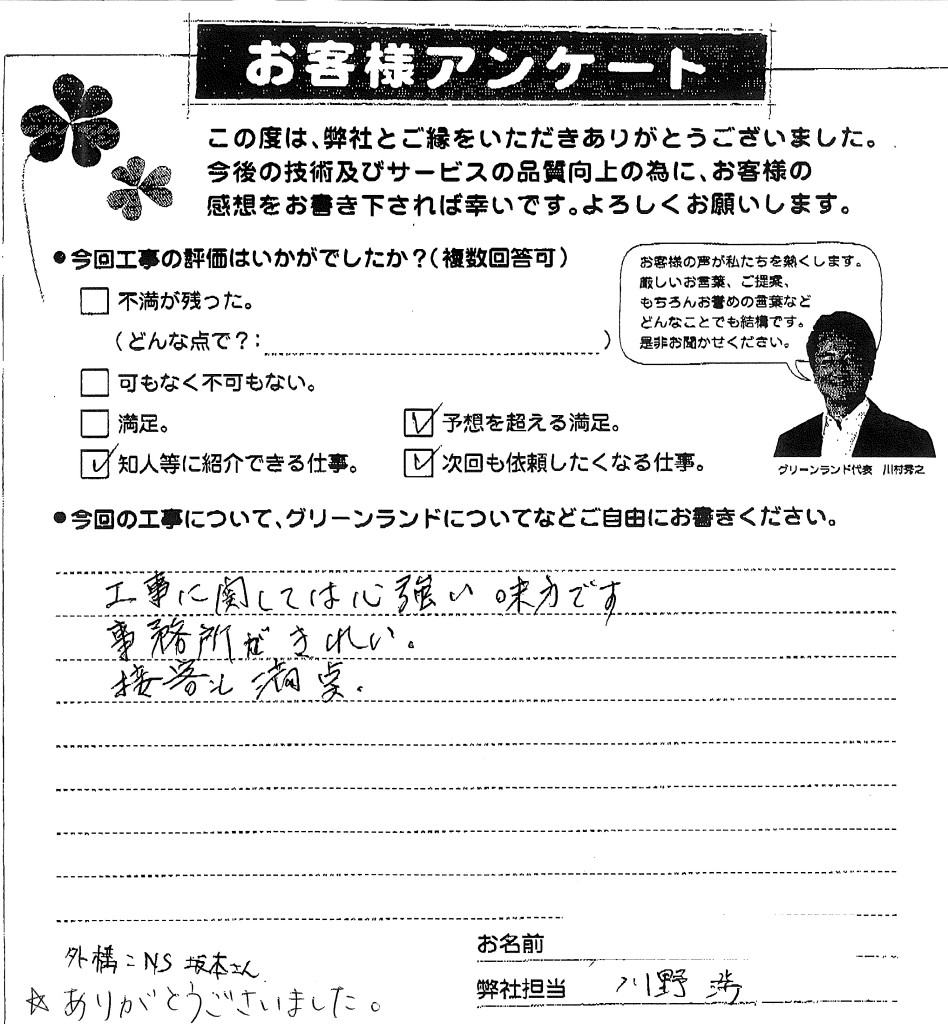 お客様アンケート
この度は、弊社とご縁をいただきありがとうございました。
今後の技術及びサービスの品質向上の為に、お客様の
感想をお書き下されば幸いです。よろしくお願いします。
●今回工事の評価はいかがでしたか？（複数回答可）
不満が残った。
（どんな点で？： ）
可もなく不可もない。
満足。
予想を超える満足。
知人等に紹介できる仕事。
次回も依頼したくなる仕事。
お客様の声が私たちを熱くします。
厳しいお言葉、ご提案、
もちろんお誉めの言葉など
どんなことでも結構です。
是非お聞かせください。
グリーンランド代表 川村秀之
●今回の工事について、グリーンランドについてなどご自由にお書きください。
工事に関しては心強い味方です
事務所がきれい。
接客も満点。
お名前
弊社担当 川野
外構：NS 坂本さん
☆ありがとうございました。